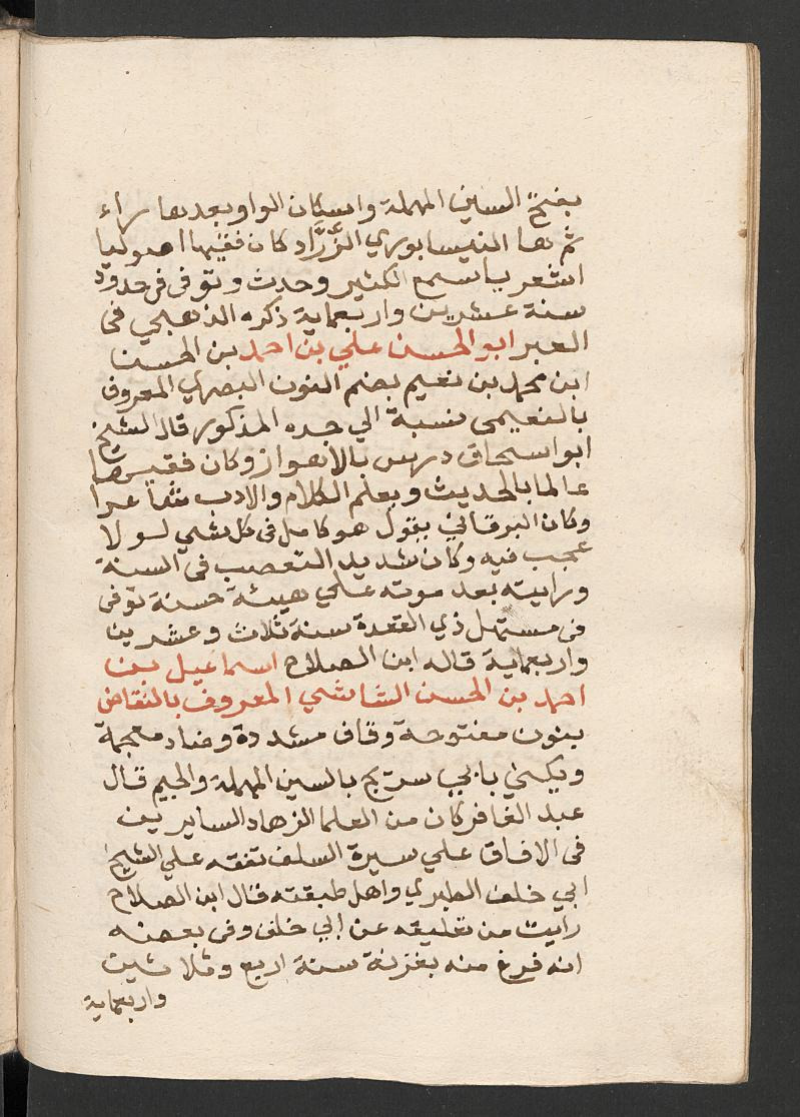 بفتح السين المهملة واسكان الواو بعدها راء
ثم ها النيسابوري الزراد كان فقيها اصوليا
اشعريا سمع الكثير وحدث وتوفى في حدود
سنة عشرين واربعماية ذكره الذهبي فى
العبر ابو الحسن علي بن احمد بن الحسن
ابن محمد بن نعيم بضم النون البصري المعروف
بالنعيمى نسبة الي جده المذكور قال الشيخ
ابو اسحاق درس بالاهواز وكان فقيها
عالما بالحديث وبعلم الكلام والادب شاعرا
وكان البرقاني يقول هو كامل فى كل شي لولا
عجب فيه وكان شديد التعصب فى السنة
ورايته بعد موته علي هيئة حسنة توفى
فى مستهل ذي القعدة سنة ثلاث وعشرين
واربعماية قاله ابن الصلاح اسماعيل بن
احمد بن الحسن الشاشي المعروف بالنقاض
بنون مفتوحة وقاف مشددة وضاد معجمة
ويكني بابي سريج بالسين المهملة والجيم قال
عبد الغافر كان من العلما الزهاد السايرين
فى الافاق علي سيرة السلف تفقه علي الشيخ
ابي خلف الطبري واهل طبقته قال ابن الصلاح
رايت من تعليقه عن ابي خلف وفى بعضه
انه فرغ منه بغزنة سنة اربع وثلاثين
واربعماية